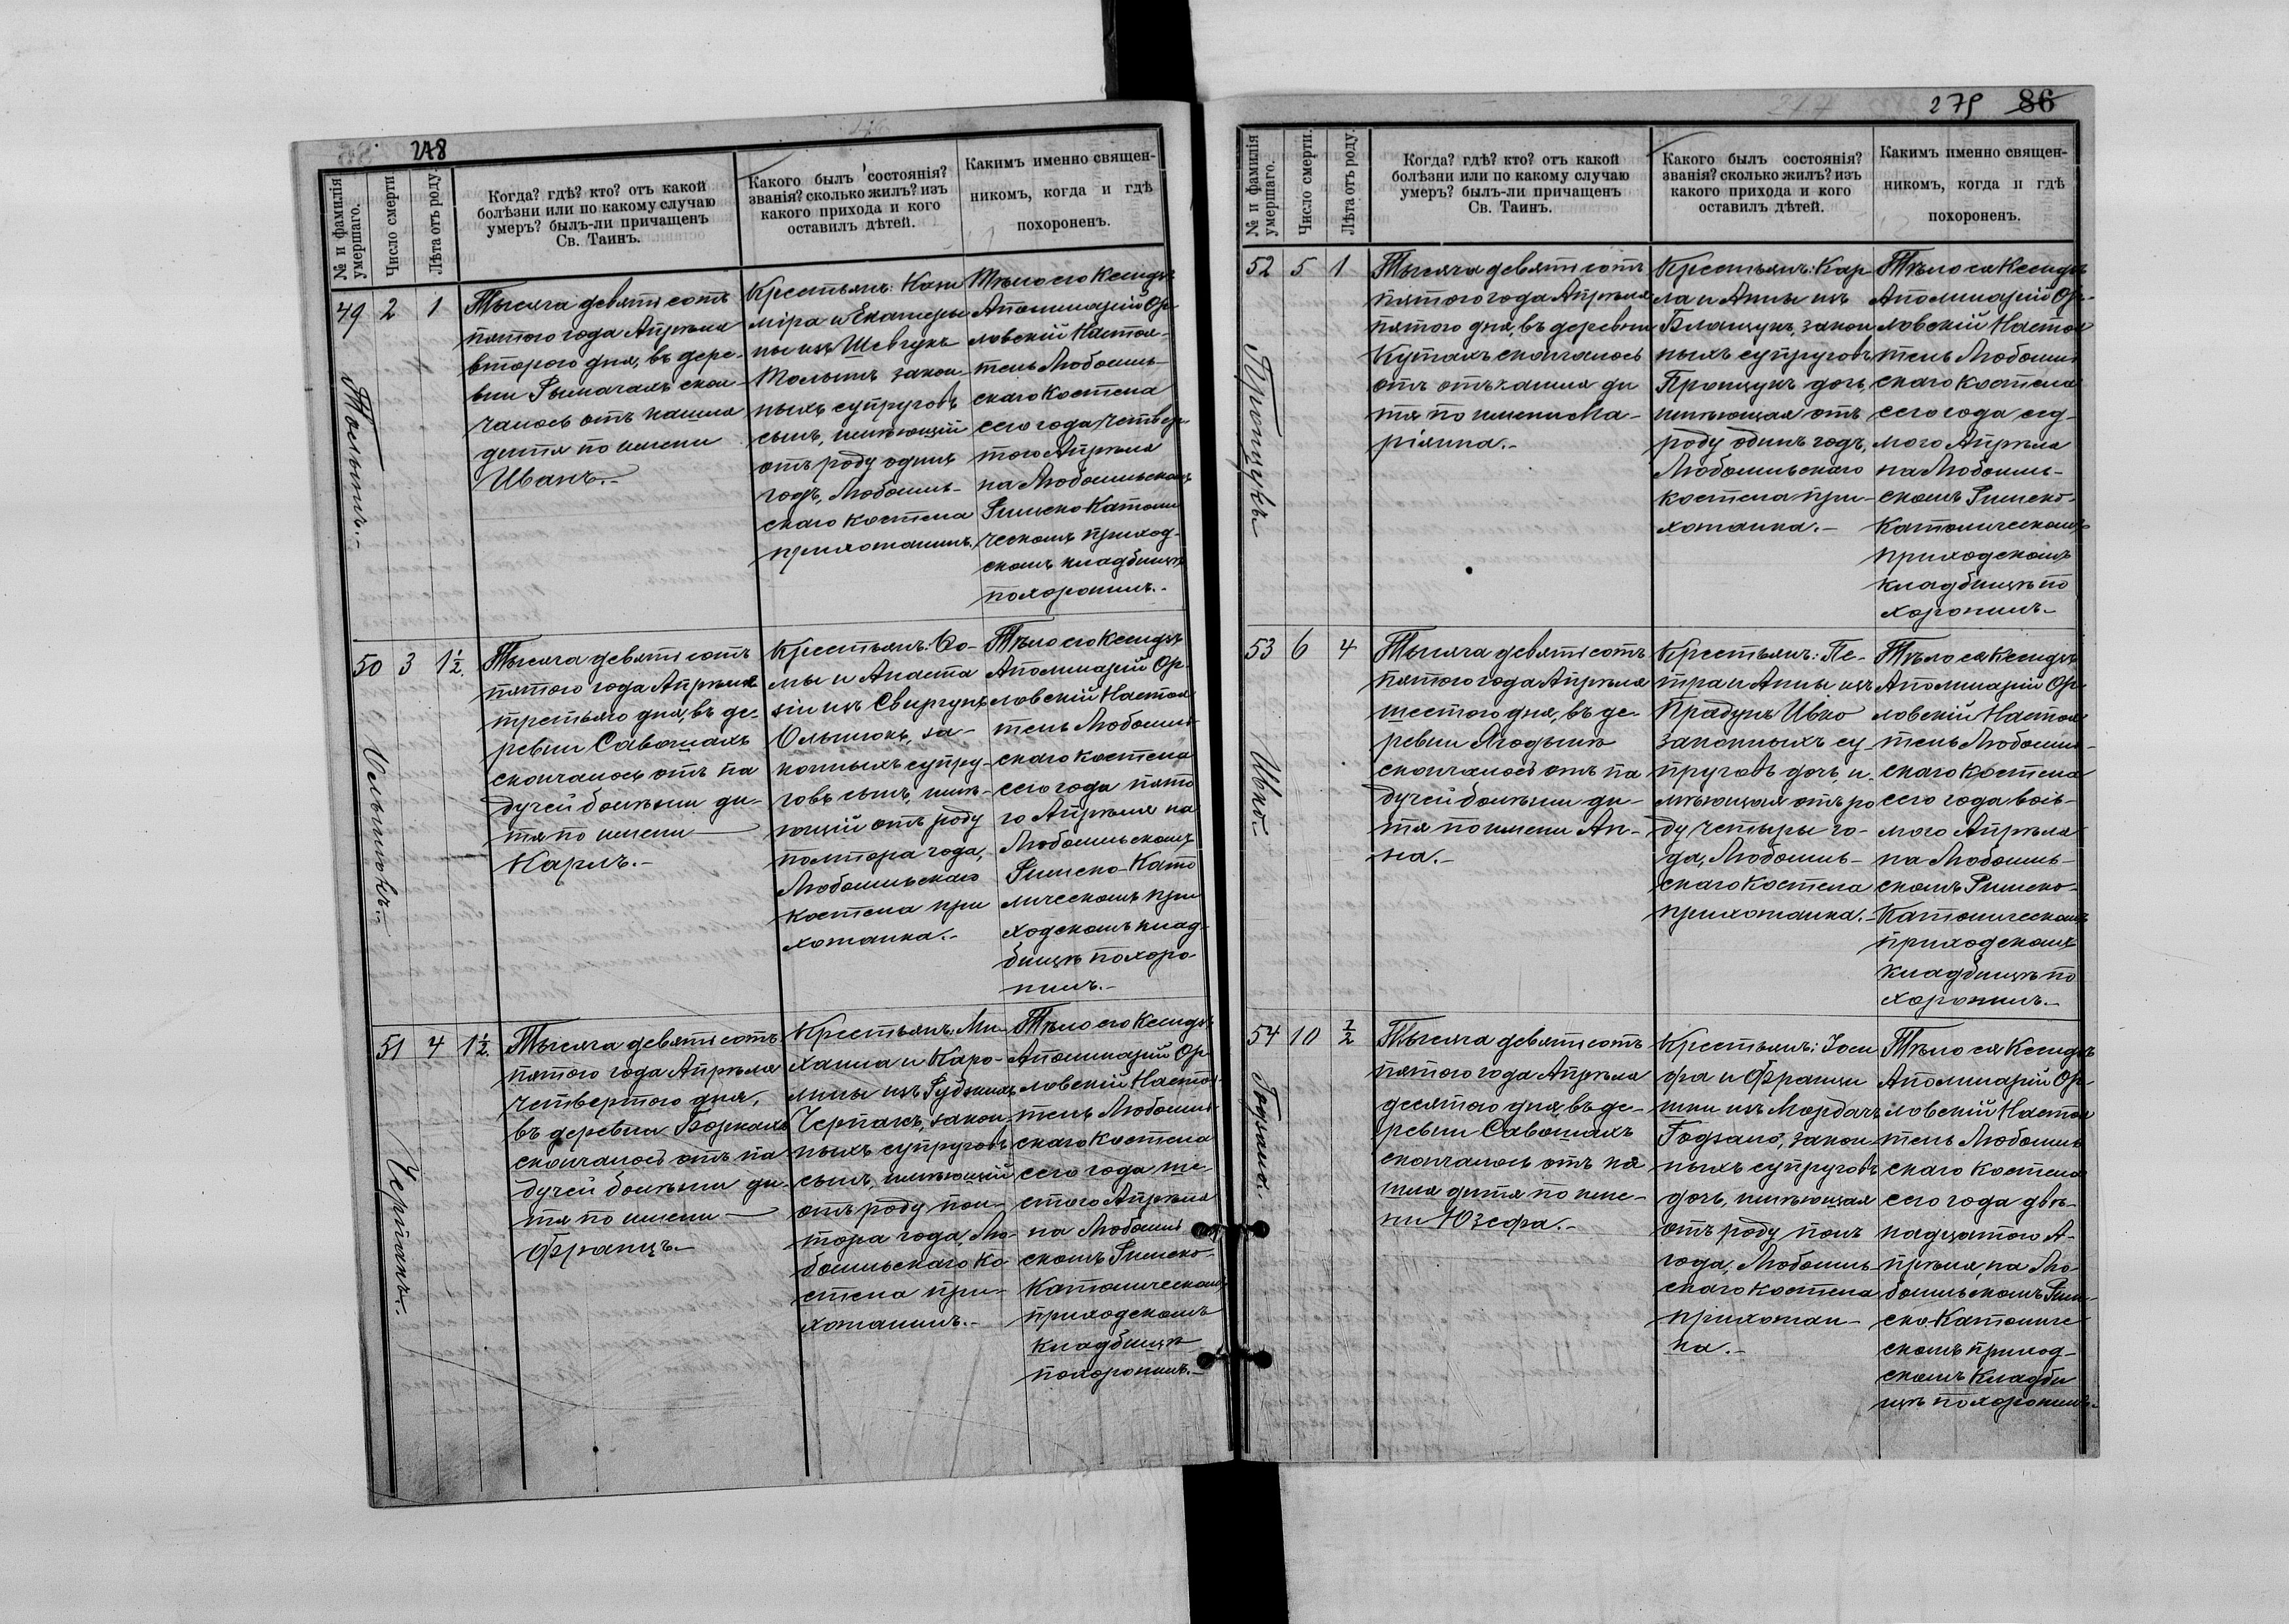 248
№ и фамилія умершаго.
Число смерти
Лѣта отъ роду
Когда? гдѣ? кто? отъ какой
болѣзни или по какому случаю
умеръ? былъ-ли причащенъ
Св. Таинъ.
Какого былъ состоянія?
званія? сколько жилъ? изъ
какого прихода и кого
оставилъ дѣтей.
Какимъ именно священ-
никомъ, когда и гдѣ
похороненъ.
49
2
1
Тысяча девятьсотъ
пятого года Апрѣля
второго дня, въ дере-
вни Рымачахъ скон
чалось отъ кашля
дитя по имени
Иванъ.-
Крестьянъ: Кази
міра и Екатери
ны изъ Шевчукъ
закон
ныхъ супруговъ
сынъ, имѣющій
отъ роду одинъ
годъ, Любомль-
скаго костела
прихожанинъ.
Тѣло его Ксендзъ
Аполинарій Ор-
ловскій Настоя-
тель Любомль-
скаго костела
сего года четвер-
того Апрѣля
на Любомльскомъ
Римско Католи
ческомъ приход-
скомъ кладбищѣ
похоронилъ.-
50
3
1 1/2.
Ольшюкъ.-
Тысяча девятьсотъ
пятого года Апрѣля
третьяго дня, въ де-
ревни Савошахъ
скончалось отъ па
дучей болѣзни ди-
тя по имени —
Карлъ.-
Крестьянъ: Ѳо-
мы и Анаста
зіи изъ Свиргунъ
Ольшюкъ, за-
конныхъ супру-
говъ сынъ, имѣ-
ющій отъ роду
полтора года,
Любомльскаго
костела при
хожанка.-
Тѣло его Ксендзъ
Аполинарій Ор-
ловскій Настоя
тель Любомль-
скаго костела
сего года пято
го Апрѣля на
Любомльскомъ
Римско-Като
лическомъ при
ходскомъ клад-
бищѣ похоро
нилъ.-
51
4
1 1/2.
Черпакъ.-
Тысяча девятьсотъ
пятого года Апрѣля
четвертого дня,
въ деревни Боркахъ
скончалось отъ па
дучей болѣзни ди-
тя по имени —
Францъ.-
Крестьянъ: Ми-
хаила и Каро-
лины изъ
Черпакъ, закон
ныхъ супруговъ
сынъ, имѣющій
отъ роду пол-
тора года, Лю-
бомльскаго ко
стела при-
хожанинъ.-
Тѣло его Ксендзъ
Аполинарій Ор
ловскій Настоя-
тель Любомль-
скаго костела
сего года ше-
стого Апрѣля
на Любомль
скомъ Римско-
Католическомъ
приходскомъ
кладбищѣ
похоронилъ.-
279 86
№ и фамилія умершаго.
Число смерти.
Лѣта отъ роду.
Когда? гдѣ? кто? отъ какой
болѣзни или по какому случаю
умеръ? былъ-ли причащенъ
Св. Таинъ.
Какого былъ состоянія?
званія? сколько жилъ? изъ
какого прихода и кого
оставилъ дѣтей.
Какимъ именно священ-
никомъ, когда и гдѣ
похороненъ.
52
5
1
Тысяча девятьсотъ
пятого года Апрѣля
пятого дня, въ деревни
Кутахъ скончалось
отъ ди
тя по имени Ма-
ріянна.-
Крестьянъ: Кар
ла и Анны изъ
закон
ныхъ супруговъ
дочь,
имѣющая отъ
роду одинъ годъ,
Любомльскаго
костела при-
хожанка.-
Тѣло ея Ксендзъ
Аполинарій Ор-
ловскій Настоя
тель Любомль
скаго костела
сего года сед-
мого Апрѣля
на Любомль-
скомъ Римско-
Католическомъ
приходскомъ
кладбищѣ по
хоронилъ.-
53
6
4
Ивко.-
Тысяча девятьсотъ
пятого года Апрѣля
шестого дня, въ де-
ревни Ягодынѣ
скончалось отъ па
дучей болѣзни ди-
тя по имени Ан-
на.-
Крестьянъ: Пе-
тра и Анны изъ
Прадунъ Ивко
законныхъ су-
пруговъ дочь, и-
мѣющая отъ ро
ду четыры го-
да, Любомль-
скаго костела
прихожанка.-
Тѣло ея Ксендзъ
Аполинарій Ор-
ловскій Настоя
тель Любомль-
скаго костела
сего года вось-
мого Апрѣля
на Любомль-
скомъ Римско-
Католическомъ
приходскомъ
кладбищѣ по
хоронилъ.-
54
10
1/2
Годзало.-
Тысяча девятьсотъ
пятого года Апрѣля
десятого дня, въ де-
ревни Савошахъ
скончалось отъ ка
шля дитя по име-
ни Юзефа.-
Крестьянъ: Іоси
фа и Францы
шки изъ Мордачъ
Годзало, закон
ныхъ супруговъ
дочь, имѣющая
отъ роду полъ
года, Любомль-
скаго костела
прихожан-
ка.-
Тѣло ея Ксендзъ
Аполинарій Ор-
ловскій Настоя
тель Любомль
скаго костела
сего года двѣ-
надцатого А-
прѣля, на Лю-
бомльскомъ Рим-
ско-Католиче
скомъ приход-
скомъ кладби
щѣ похоронилъ.-